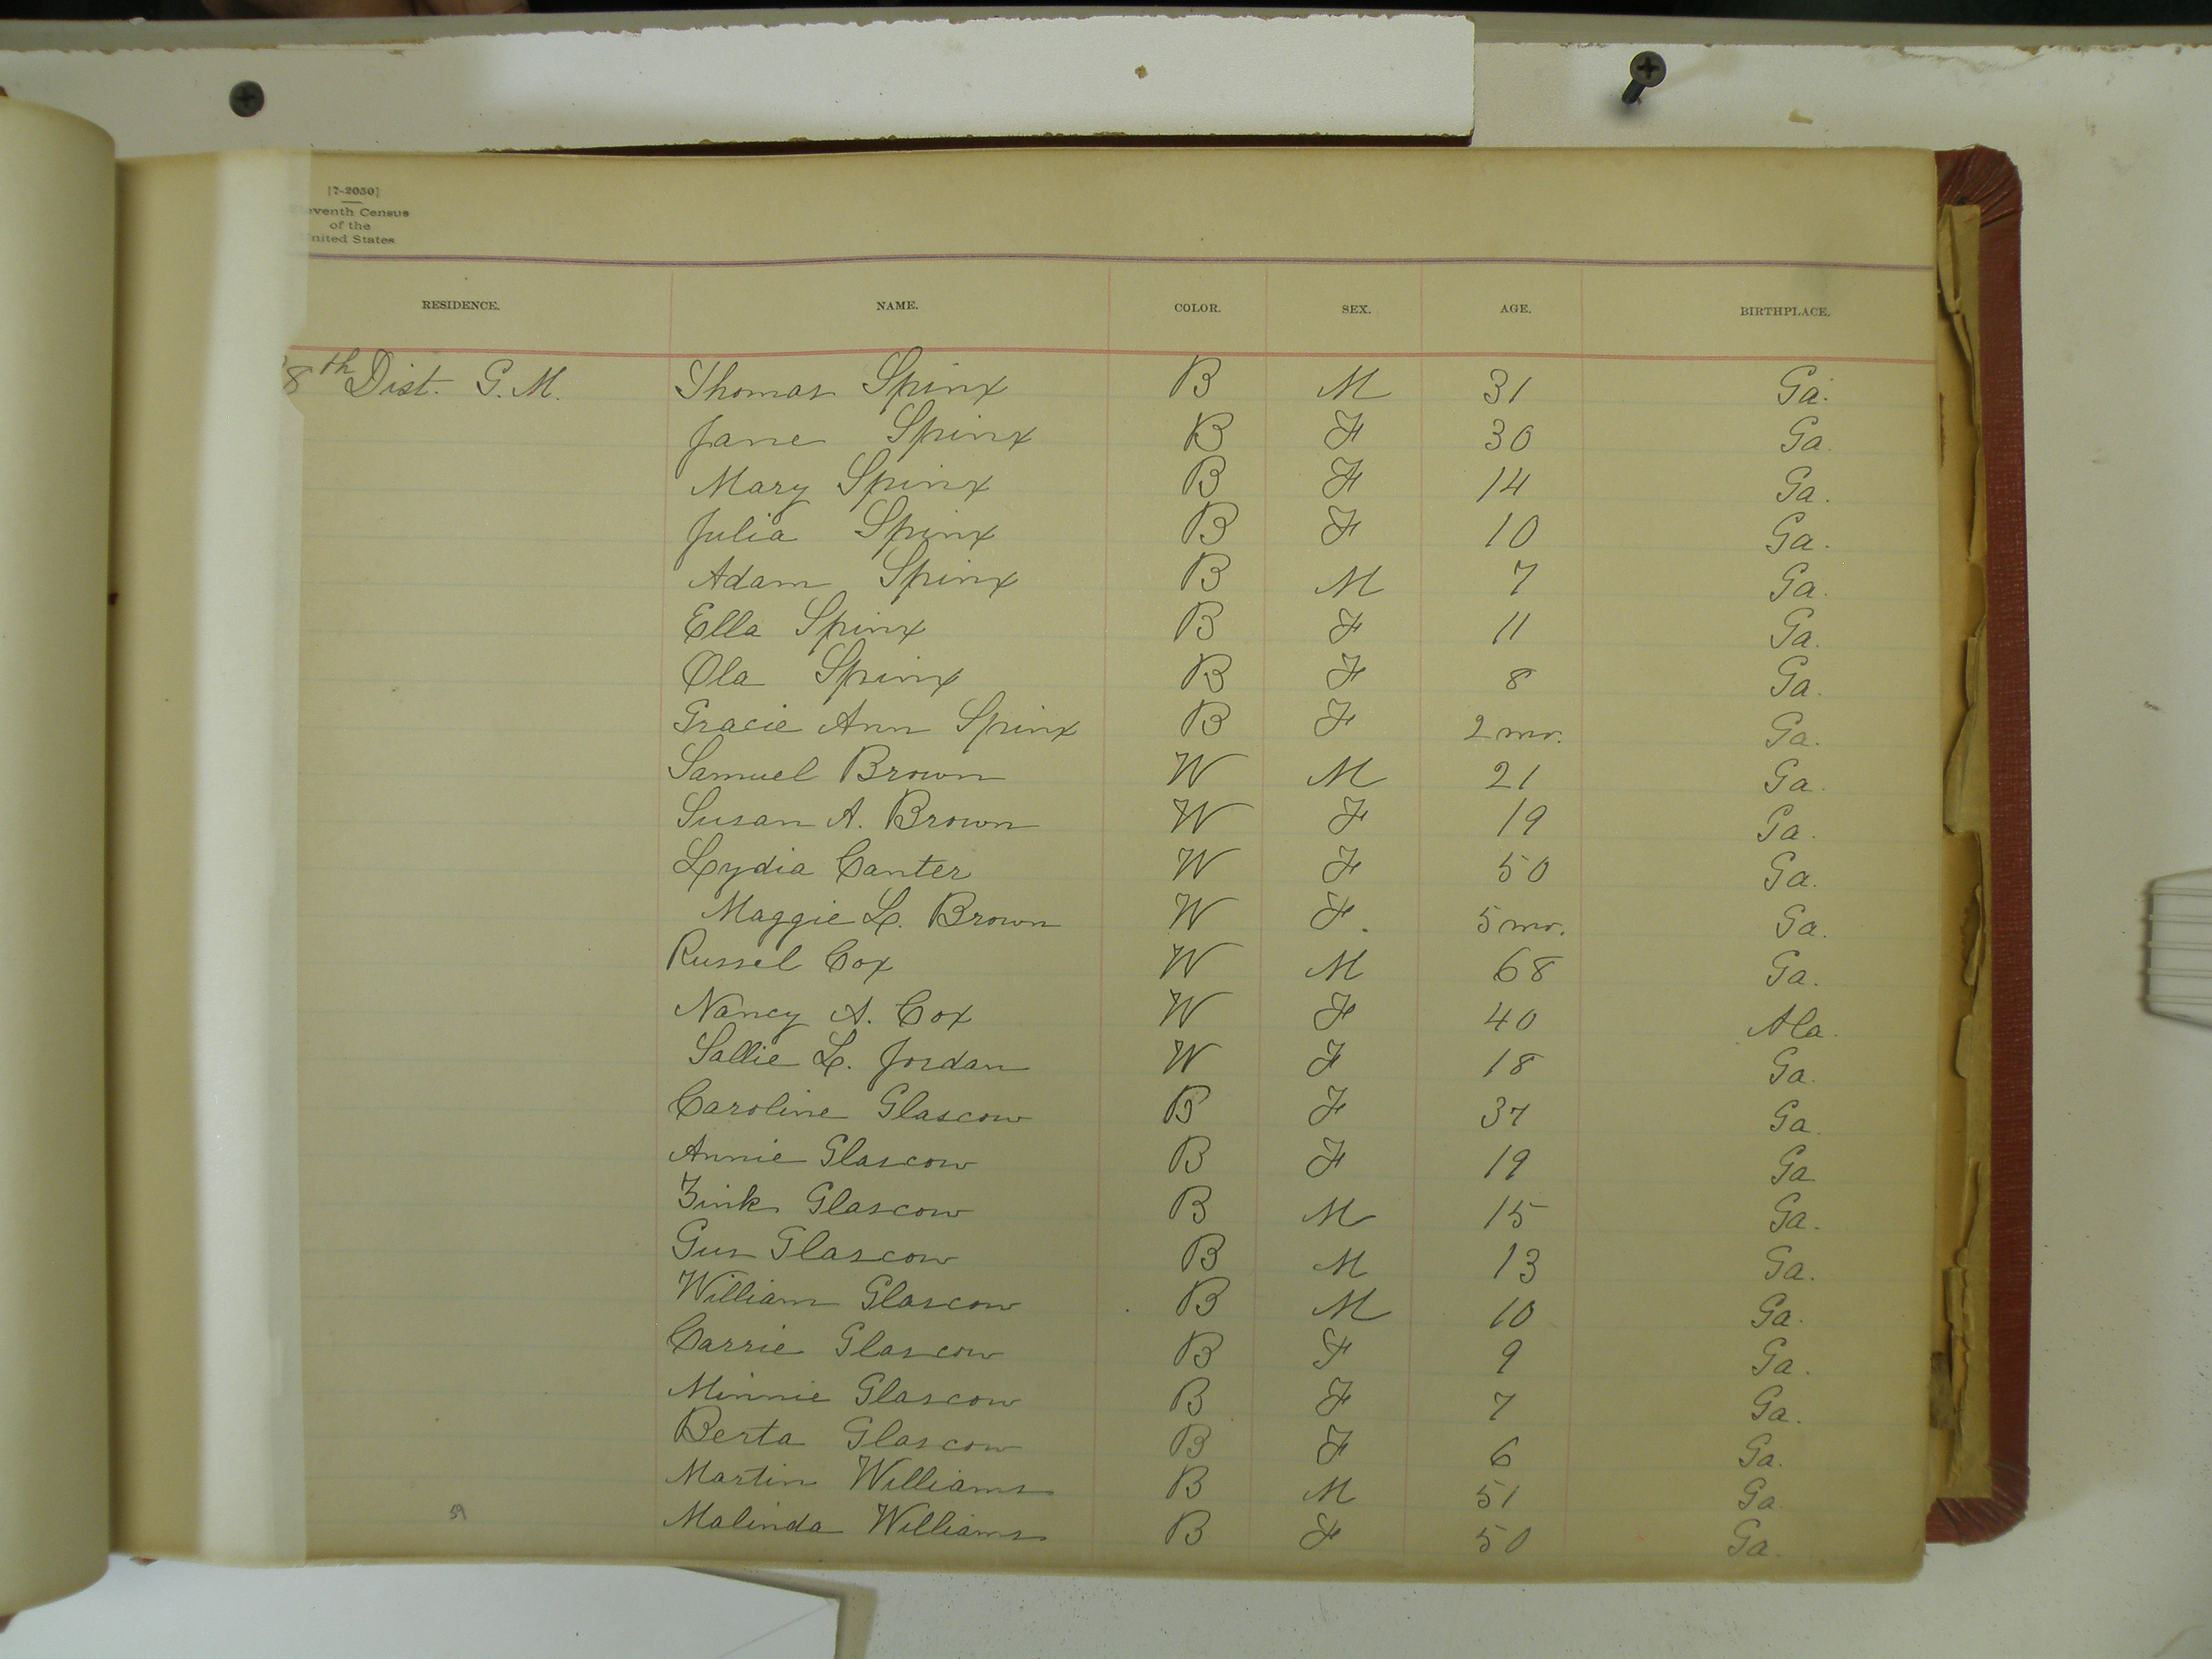 [7-2050]
eventh Census
of the
nited States
RESIDENCE. NAME. COLOR. SEX. AGE. BIRTHPLACE.
8th Dist. G. M. Thomas Spinx B M 31 Ga.
Jane Spinx B F 30 Ga.
Mary Spinx B F 14 Ga.
Julia Spinx B F 10 Ga.
Adam Spinx B M 7 Ga.
Ella Spinx B F 11 Ga.
Ola Spinx B F 8 Ga.
Gracie Ann Spinx B F 2 mo. Ga.
Samuel Brown W M 21 Ga.
Susan A. Brown W F 19 Ga.
Lydia Canter W F 50 Ga.
Maggie L. Brown W F. 5 mo. Ga.
Russel Cox W M 68 Ga.
Nancy A. Cox W F 40 Ala.
Sallie L. Jordan W F 18 Ga.
Caroline Glascow B F 37 Ga.
Annie Glascow B F 19 Ga
Zink Glascow B M 15 Ga.
Gus Glascow B M 13 Ga.
William Glascow B M 10 Ga.
Carrie Glascow B F 9 Ga.
Minnie Glascow B F 7 Ga.
Berta Glascow B F 6 Ga.
Martin Williams B M 51 Ga.
59 Malinda Williams B F 50 Ga.